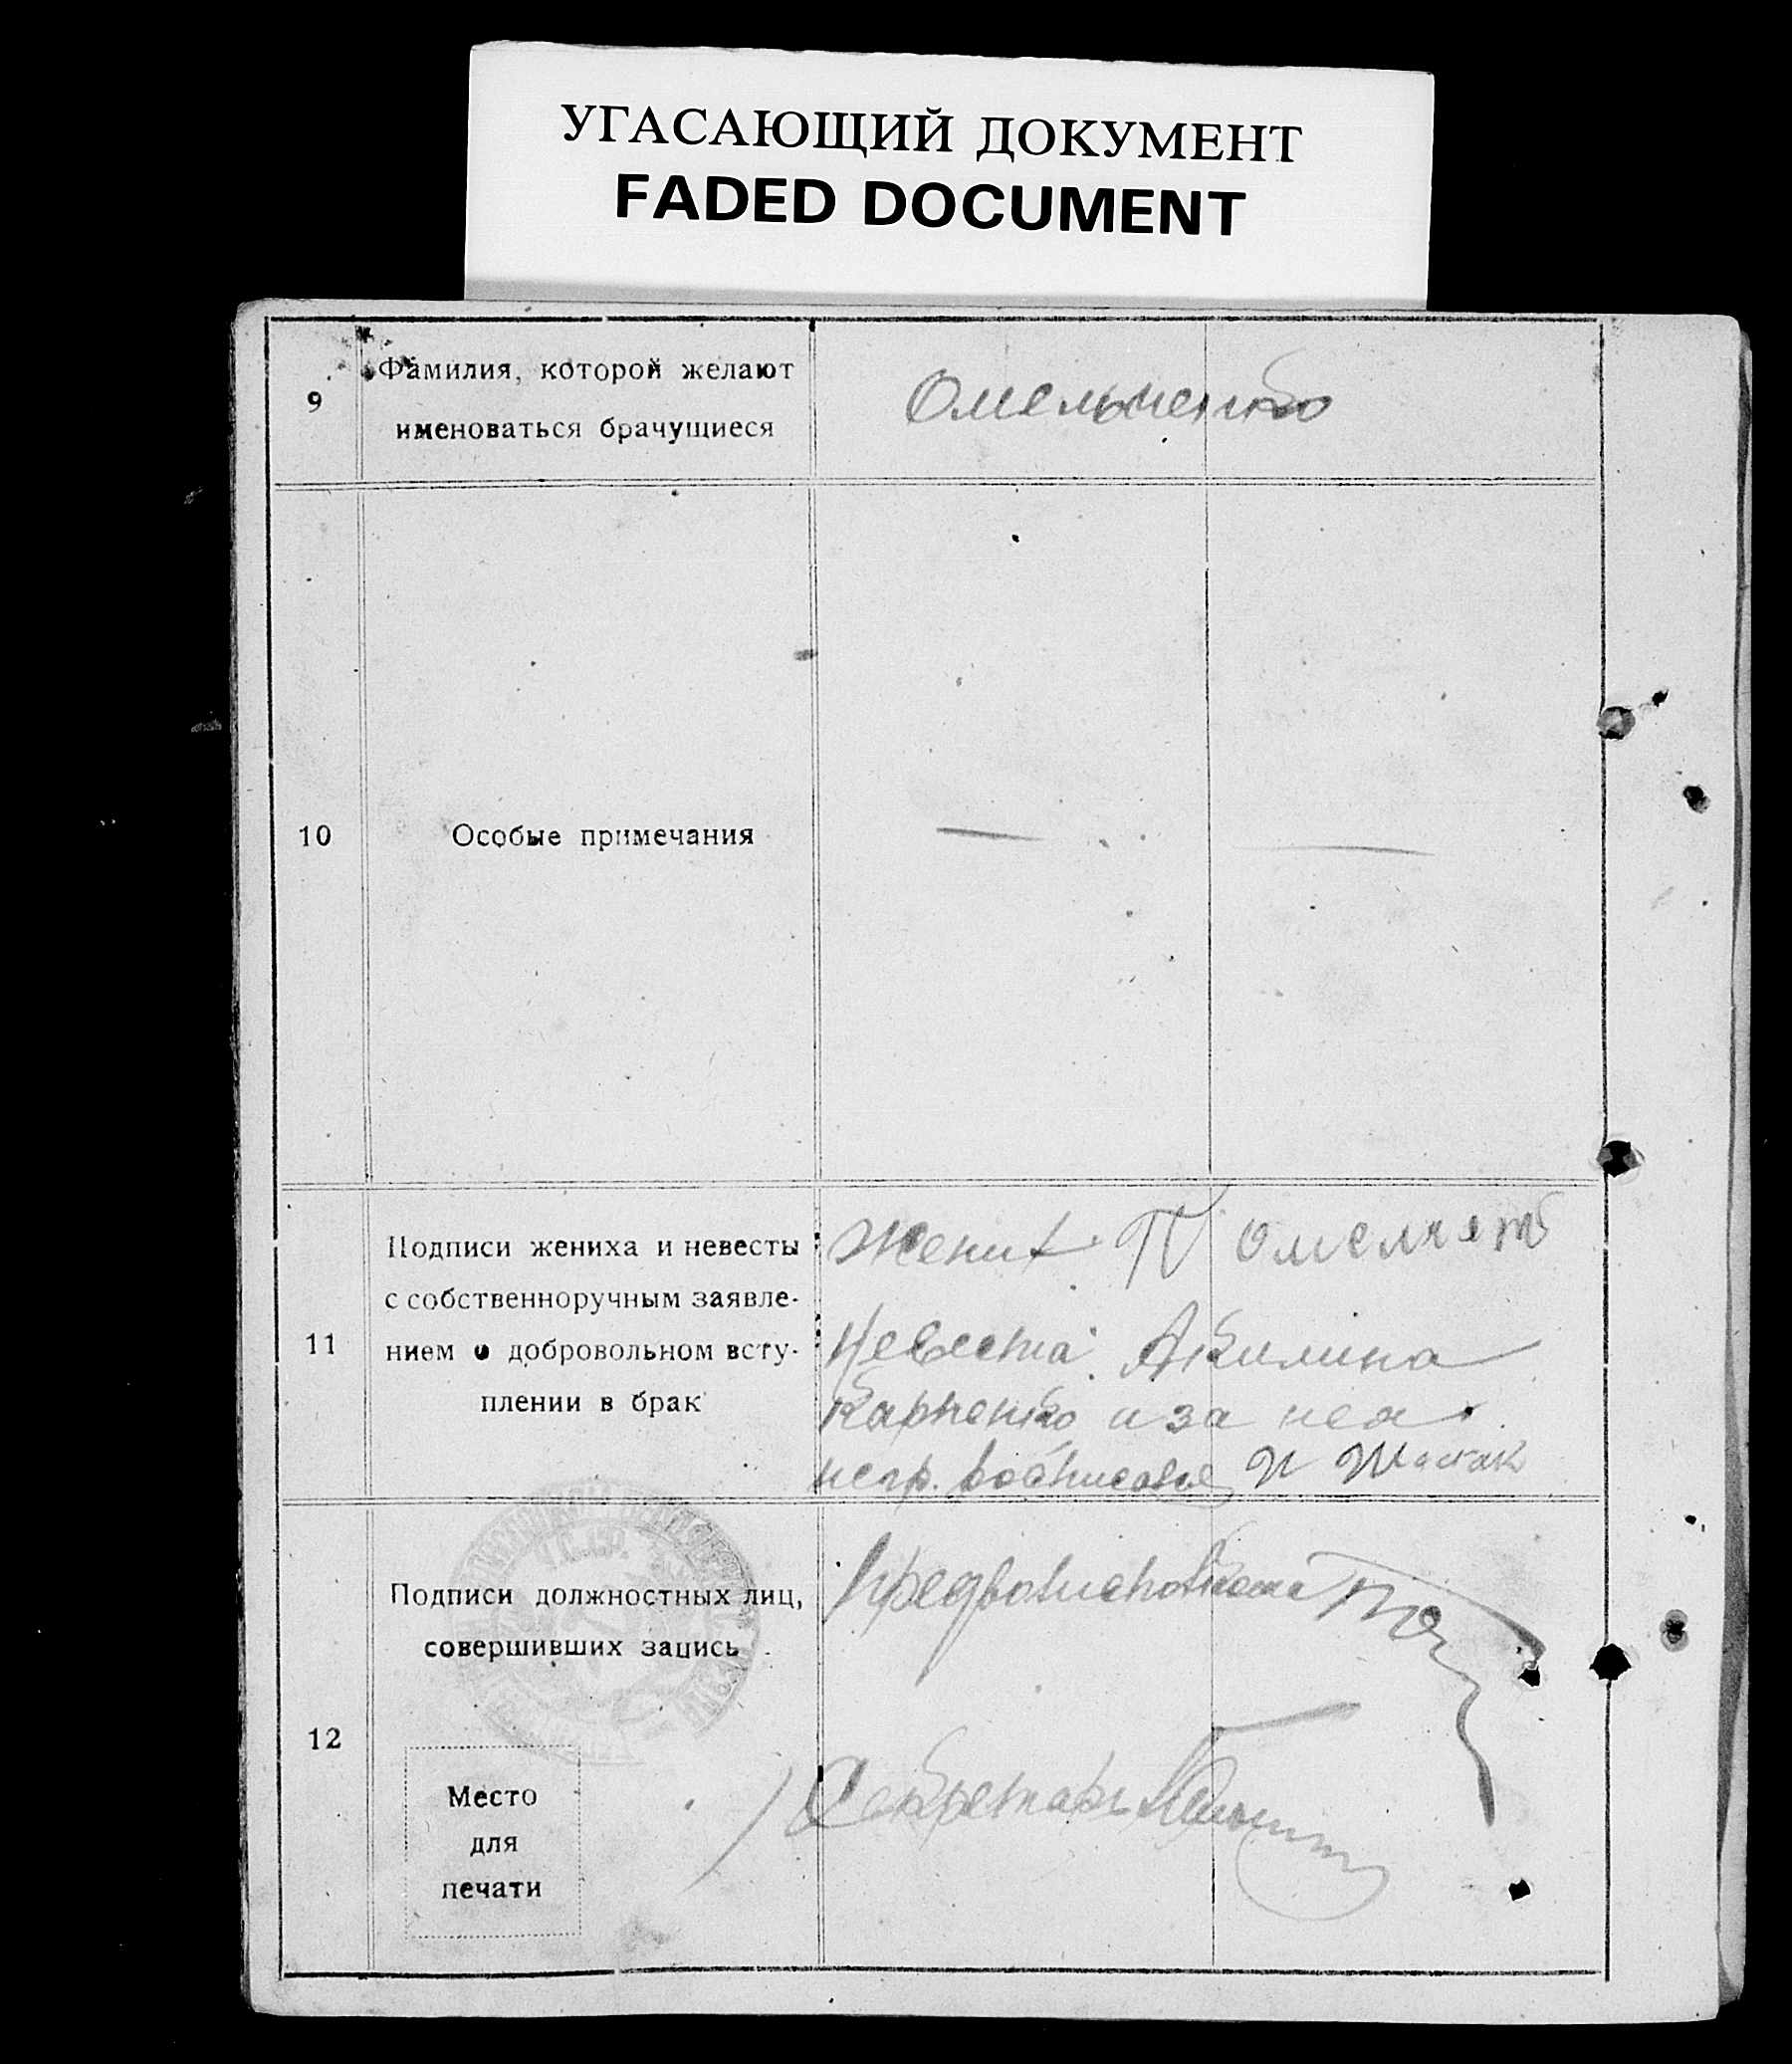 УГАСАЮЩИЙ ДОКУМЕНТ
FADED DOCUMENT
9
Фамилия, которой желают
именоваться брачущиеся
Омельченко
10
Особые примечания
11
Подписи жениха и невесты
с собственноручным заявле-
нием о добровольном всту-
плении в брак
Жених П
Невеста Акилина
Карпенко и за нея
негр.
12
Подписи должностных лиц,
совершивших запись
Секретарь
Место
для
печати